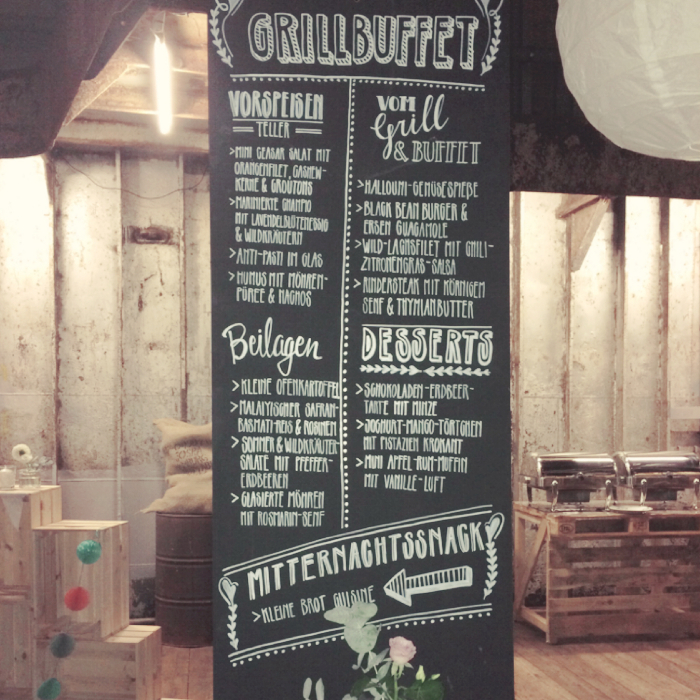 GRILLBUFFET
VORSPEISEN
TELLER
>MINI CEASAR SALAT MIT
ORANGENFILET, CASHEW-
KERNE & CROUTONS
>MARINIERTE CHAMPIO
MIT LAVENDELBLÜTENESSIG
& WILDKRÄUTERN
>ANTI-PASTI IM GLAS
>HUMUS MIT MÖHREN-
PÜREE & NACHOS
Beilagen
>KLEINE OFENKARTOFFEL
>MALAYISCHER SAFRAN-
BASMATI-REIS & ROSINEN
>SOMMER & WILDKRÄUTER
SALATE MIT PFEFFER-
ERDBEEREN
>GLASIERTE MÖHREN
MIT ROSMARIN-SENF
VOM
Grill
& BUFFET
>HALLOUMI-GEMÜSESPIEßE
>BLACK BEAN BURGER &
ERBSEN GUACAMOLE
>WILD-LACHSFILET MIT CHILI-
ZITRONENGRAS-SALSA
>RINDERSTEAK MIT KÖRNIGEM
SENF & THYMIANBUTTER
DESSERTS
>SCHOKOLADEN-ERDBEER-
TARTE MIT MINZE
>JOGHURT-MANGO-TÖRTCHEN
MIT PISTAZIEN KROKANT
>MINI APFEL-RUM-MUFFIN
MIT VANILLE-LUFT
MITTERNACHTSSNACK
>KLEINE BROT CUISINE